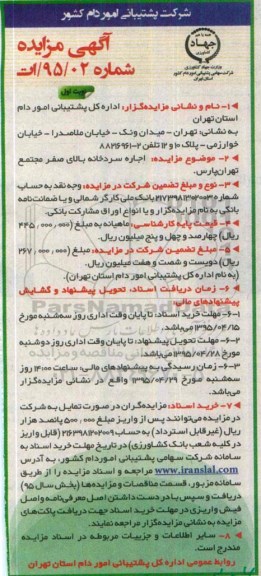 شرکت پشتیبانی امور دام کشور
آگهی مزایده
شماره ۹۵/۰۲/ات
نوبت اول
جهاد
وزارت جهاد کشاورزی
شرکت سهامی پشتیبانی امور دام کشور
استان تهران
۱- نام و نشانی مزایده‌گزار: اداره کل پشتیبانی امور دام
استان تهران
به نشانی: تهران - میدان ونک - خیابان ملاصدرا - خیابان
خوارزمی - پلاک ۱۰ و ۱۲ تلفن ۲-
۲- موضوع مزایده: اجاره سردخانه بالای صفر مجتمع
تهران‌پارس.
۳- نوع و مبلغ تضمین شرکت در مزایده: وجه نقد به حساب
شماره بانک ملی کارگر شمالی و یا ضمانت نامه
بانکی به نام مزایده‌گزار و یا انواع اوراق مشارکت بانکی.
۴- قیمت پایه کارشناسی: ماهیانه به مبلغ (۴۴۵,۰۰۰,۰۰۰
ریال) چهارصد و چهل و پنج میلیون ریال.
۵- مبلغ تضمین شرکت در مزایده: مبلغ (۲۶۷,۰۰۰,۰۰۰
ریال) دویست و شصت و هفت میلیون ریال.
(به نام اداره کل پشتیبانی امور دام استان تهران).
۶- زمان دریافت اسناد، تحویل پیشنهاد و گشایش
پیشنهادهای مالی:
۱-۶- مهلت خرید اسناد: تا پایان وقت اداری روز سه‌شنبه مورخ
۱۳۹۵/۰۴/۱۵ می‌باشد.
۲-۶- مهلت تحویل پیشنهاد: تا پایان وقت اداری روز دوشنبه
مورخ ۱۳۹۵/۰۴/۲۸ می‌باشد.
۳-۶- زمان رسیدگی به پیشنهادهای مالی: ساعت ۱۴:۰۰ روز
سه‌شنبه مورخ ۱۳۹۵/۰۴/۲۹ واقع در نشانی مزایده‌گزار
می‌باشد.
۷- خرید اسناد: مزایده‌گران در صورت تمایل به شرکت
در مزایده می‌توانند پس از واریز مبلغ ۵۰۰,۰۰۰ پانصد هزار
ریال (غیر قابل استرداد) به حساب (قابل واریز
در کلیه شعب بانک کشاورزی) در تاریخ مهلت خرید اسناد به
سامانه شرکت سهامی پشتیبانی امور دام کشور، به آدرس
www.iranslal.com مراجعه و اسناد مزایده را از طریق
سامانه مزبور، قسمت مناقصات و مزایده‌ها (بخش سال ۹۵)
دریافت و سپس با در دست داشتن اصل معرفی‌نامه و اصل
فیش واریزی در مهلت خرید اسناد جهت دریافت پاکت‌های
مزایده به نشانی مزایده‌گزار مراجعه نمایند.
۸- سایر اطلاعات و جزییات مربوطه در اسناد مزایده
مندرج است.
روابط عمومی اداره کل پشتیبانی امور دام استان تهران